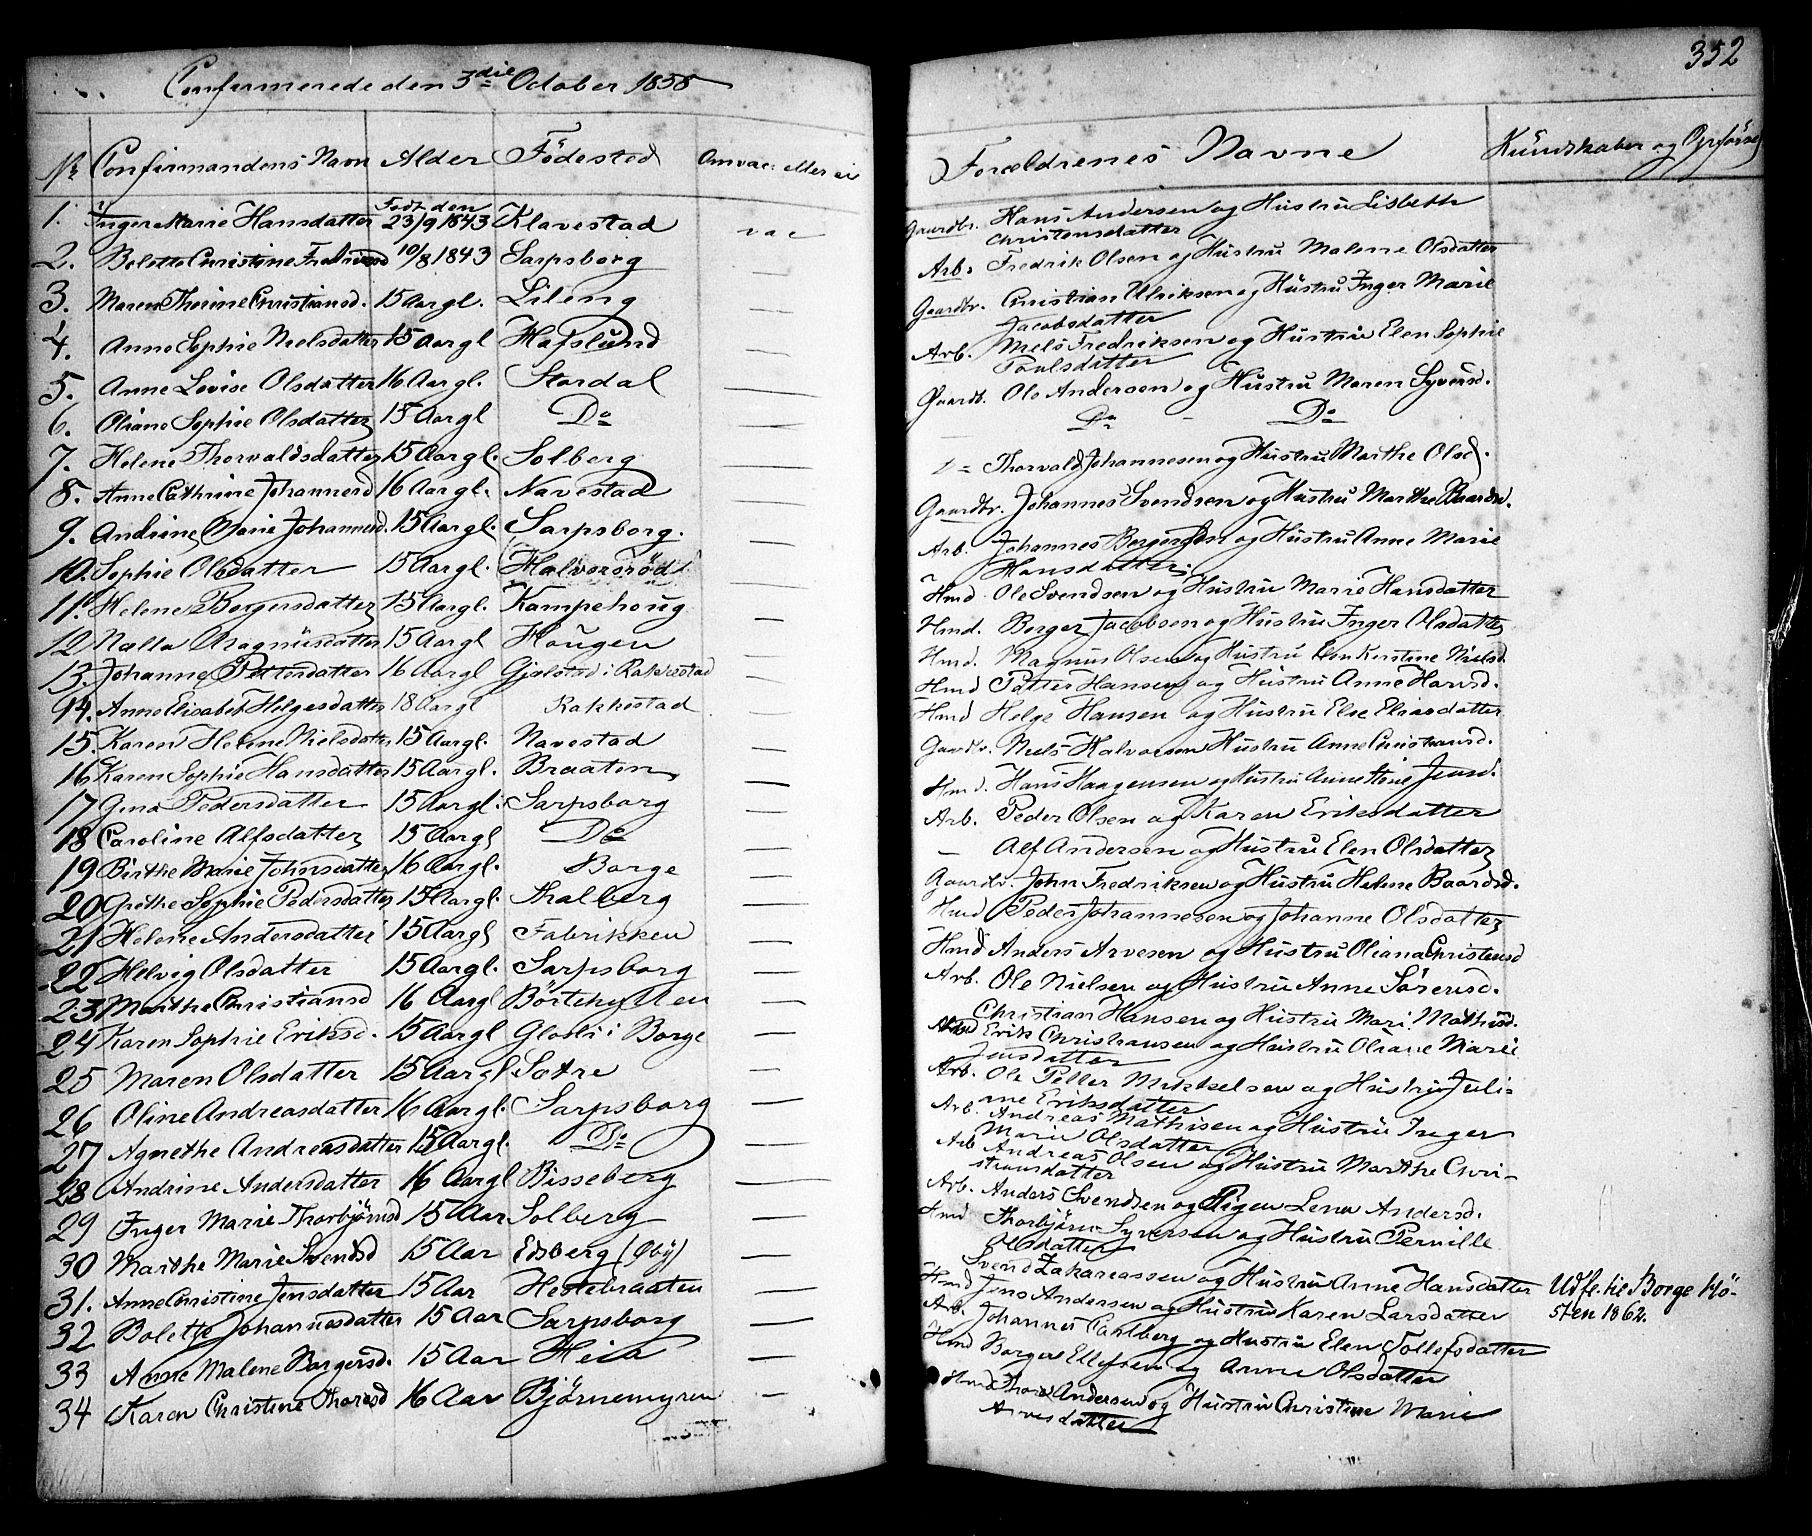 352
Confirmerede den 3die October 1858
No Confirmandens Navn Alder Födested
Forældrenes Navne Kundskaber og Opförsel
1. Inger Marie Hansdatter Födt den 23/9 1843 Klavestad vac
2. Bolette Christine 10/8 1843 Sarpsborg
3. Maren Thorine Christiansd. 15 Aar gl. Lileng
4. Anne Sophie Nielsdatter 15 Aar gl Hafslund
5. Anne Lovise Olsdatter 16 Aar gl. Stordal
6. Oliane Sophie Olsdatter 15 Aar gl Do
7. Helene Thorvaldsdatter 15 Aar gl. Solberg
8. Anne Cathrine Johannesd 16 Aar gl. Navestad
9. Andrine Marie Johannesd. 15 Aar gl. Sarpsborg.
10. Sophie Olsdatter 15 Aar gl. Halvorsröd
11. Helene Borgersdatter 15 Aar gl. Kampehoug
12 Magnusdatter 15 Aar gl Hougen
13. Johanne Pettersdatter 16 Aar gl Gjølstad i Rakkestad
14. Anne Elisabeth Helgesdatter 18 Aar gl Rakkestad
15. Karen Helene Nielsdatter 15 Aar gl. Navestad
16 Karen Sophie Hansdatter 15 Aar gl. Braaten
17 Gina Pedersdatter 15 Aar gl. Sarpsborg
18 Caroline Alfsdatter 15 Aar gl Do
19 Birthe Marie Johnsdatter 16 Aar gl. Borge
20 Grethe Sophie Pedersdatter 15 Aar gl. Thalberg
21 Helene Andersdatter 15 Aar gl Fabrikken
22 Helvig Olsdatter 15 Aar gl. Sarpsborg
23 Marthe Christiansd 16 Aar gl Börtehytten
24 Karen Sophie Eriksd. 15 Aar gl i Borge
25 Maren Olsdatter 15 Aar gl Sætre
26 Oline Andreasdatter 16 Aar gl. Sarpsborg
27 Agnethe Andreasdatter 15 Aar gl. Do
28 Andrine Andersdatter 16 Aar gl Bisseberg
29 Inger Marie Thorbjörnsd 15 Aar Solberg
30 Marthe Marie Svendsd 15 Aar Edsberg (Øby)
31. Anne Christine Jensdatter 15 Aar Hestebraaten
32 Bolette Johannesdatter 15 Aar Sarpsborg
33 Anne Malene Borgersd. 15 Aar Heia
34 Karen Christine Thoresd 16 Aar Bjørnemyren
Gaardbr. Hans Andersen og Hustru Lisbeth
Christensdatter
Arb. Fredrik Olsen og Hustru Malene Olsdatter
Gaardbr. Christian Ulriksen og Hustru Inger Marie
Jacobsdatter
Arb. Niels Fredriksen og Hustru Elen Sophie
Poulsdatter
Gaardb. Ole Andersen og Hustru Maren Syversd.
Do - Do
Thorvald Johannesen og Hustru Marthe Olsd.
Gaardbr. Johannes Svendsen og Hustru Marthe Baardsd.
Arb. Johannes Borgersen og Hustru Anne Marie
Hansdatter.
Hmd Ole Svendsen og Hustru Marie Hansdatter
Hmd. Borger Jacobsen og Hustru Inger Olsdatter
Hmd. Magnus Olsen og Hustru Kirstine Nielsd
Hmd Petter Hansen og Hustru Anne Hansd.
Hmd Helge Hansen og Hustru Else Eliasdatter
Gaardbr. Niels Halvorsen Hustru Anne Christensd.
Hmd. Hans Haagensen og Hustru Anne Stine Jensd.
Arb. Peder Olsen og Karen Eriksdatter
- Alf Andersen og Hustru Elen Olsdatter
Gaardbr. John Fredriksen og Hustru Helene Baardsd.
Hmd Peder Johannesen og Johanne Olsdatter
Hmd Anders Arvesen og Hustru Oliana Christensd
Arb. Ole Nielsen og Hustru Anne Sörensd.
Christian Hansen og Hustru Mari Mathisd.
Erik Christiansen og Hustru Oliane Marie
Jensdatter
Arb. Ole Petter Mikkelsen og Hustru Juli-
ane Eriksdatter
Arb. Andreas Mathisen og Hustru Inger
Marie Olsdatter
Arb Andreas Olsen og Hustru Marthe Chri-
stiansdatter
Arb. Anders Svendsen og Pigen Lena Andersd.
Hmd Thorbjörn Syversen og Hustru Pernille
Olsdatter
Svend Zakariassen og Hustru Anne Hansdatter Udfl. til Borge Hö-
sten 1862.
Hmd Jens Andersen og Hustru Karen Larsdatter
Arb. Johannes Carlberg og Hustru Elen Tollefsdatter
Hmd Borger Ellefsen og Anne Olsdatter
Hmd Thore Andersen og Hustru Christine Marie
Arvesdatter